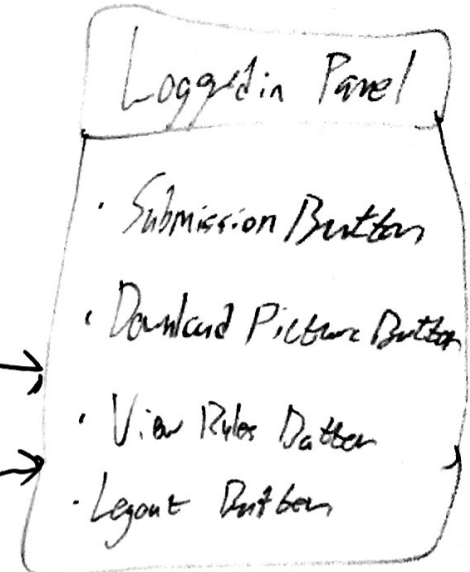 Loggedin Panel
· Submission Button
· Download Picture Button
· View Rules Button
· Logout Button